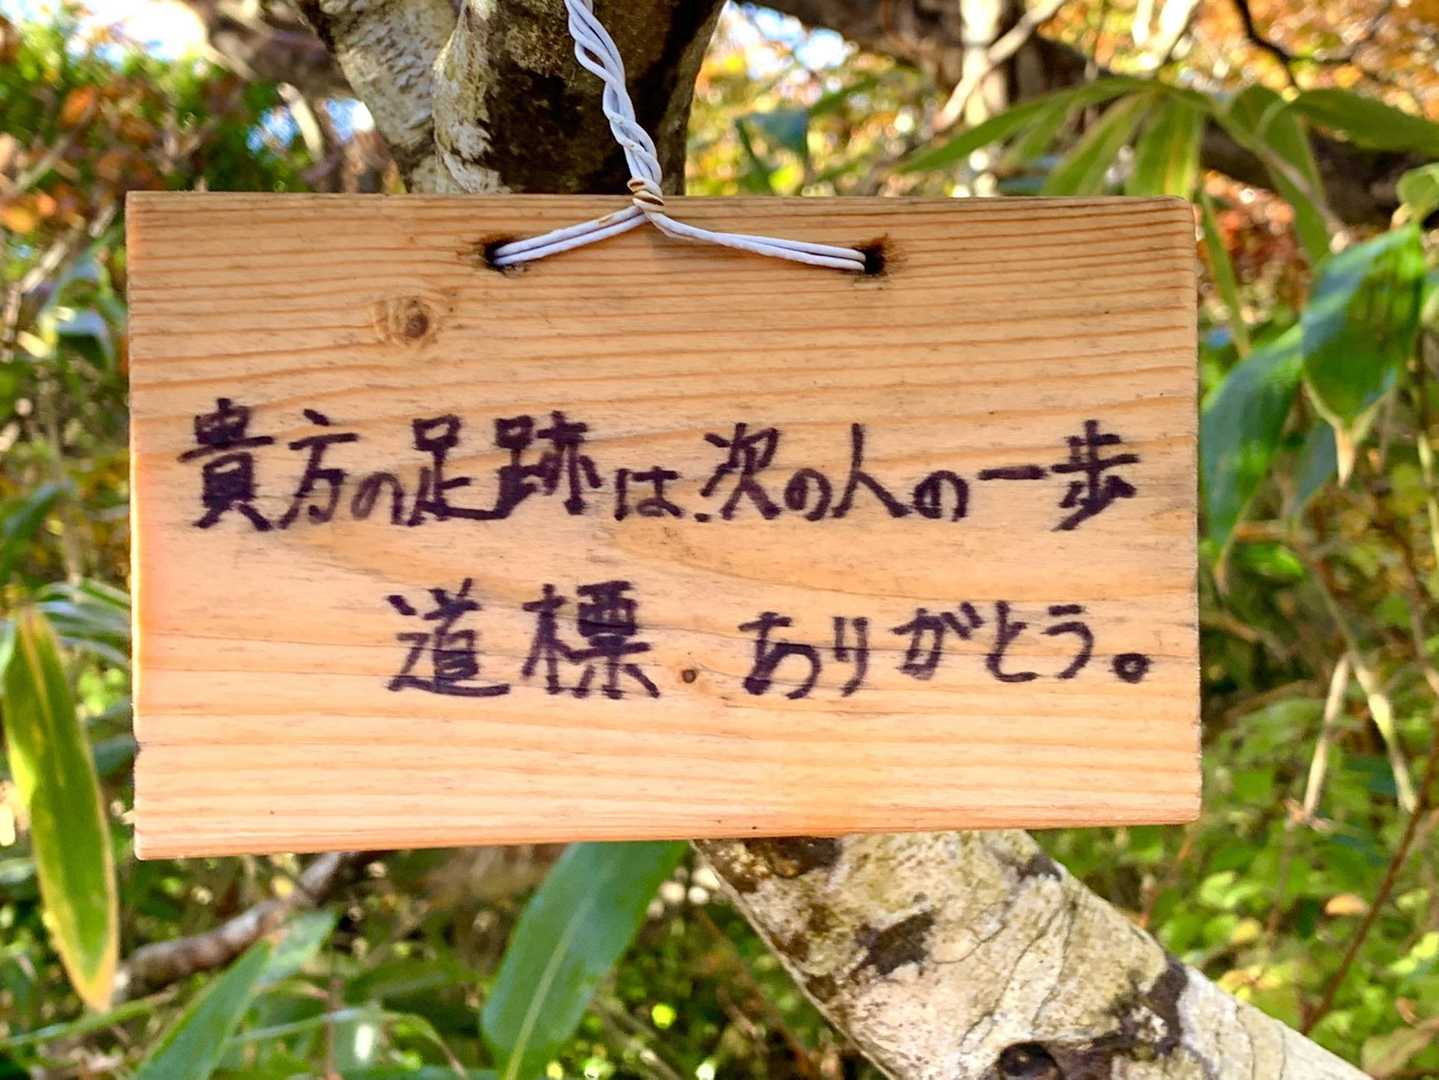 貴方の足跡は、次の人の一歩
道標 ありがとう。